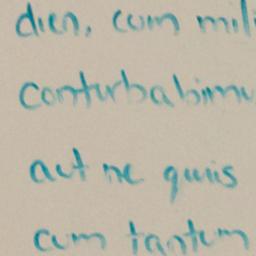 dien, cum mili
conturbabimu
aut ne quis
cum tantum